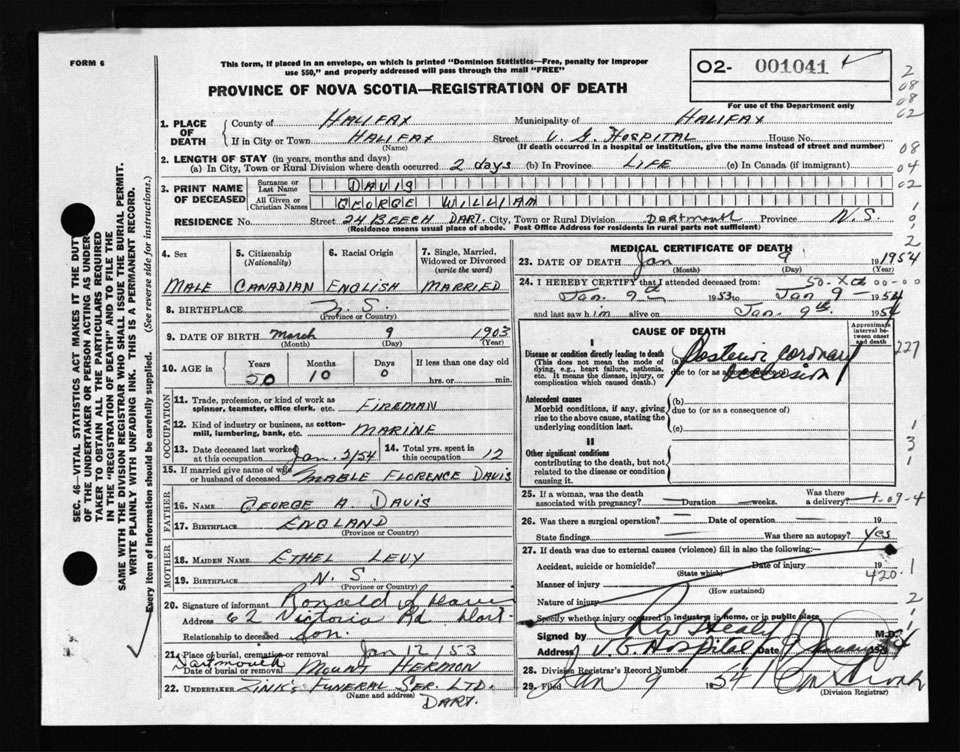 FORM 6
This form, if placed in an envelope, on which is printed "Dominion Statistics—Free, penalty for improper
use $50," and properly addressed will pass through the mail "FREE"
PROVINCE OF NOVA SCOTIA—REGISTRATION OF DEATH
02- 001041
For use of the Department only
1. PLACE OF DEATH
County of HALIFAX Municipality of HALIFAX
If in City or Town HALIFAX Street V. G. HOSPITAL House No.
(Name) (If death occurred in a hospital or institution, give the name instead of street and number)
2. LENGTH OF STAY (in years, months and days)
(a) In City, Town or Rural Division where death occurred 2 days (b) In Province LIFE (c) In Canada (if immigrant)
3. PRINT NAME OF DECEASED
Surname or Last Name DAVIS
All Given or Christian Names GEORGE WILLIAM
RESIDENCE No. Street 24 BEECH DART. City, Town or Rural Division DARTMOUTH Province N.S.
(Residence means usual place of abode. Post Office Address for residents in rural parts not sufficient)
4. Sex
MALE
5. Citizenship (Nationality)
CANADIAN
6. Racial Origin
ENGLISH
7. Single, Married, Widowed or Divorced (write the word)
MARRIED
8. BIRTHPLACE N.S.
(Province or Country)
9. DATE OF BIRTH March 9 1903
(Month) (Day) (Year)
10. AGE in Years Months Days If less than one day old
50 10 0 hrs. or min.
OCCUPATION
11. Trade, profession, or kind of work as spinner, teamster, office clerk, etc. FIREMAN
12. Kind of industry or business, as cotton-mill, lumbering, bank, etc. MARINE
13. Date deceased last worked at this occupation Jan. 2/54
14. Total yrs. spent in this occupation 12
15. If married give name of wife or husband of deceased MABLE FLORENCE DAVIS
FATHER
16. NAME GEORGE A. DAVIS
17. BIRTHPLACE ENGLAND
(Province or Country)
MOTHER
18. MAIDEN NAME ETHEL LEVY
19. BIRTHPLACE N.S.
(Province or Country)
20. Signature of informant Ronald Davis
Address 62 Victoria Rd Dart.
Relationship to deceased Son.
21. Place of burial, cremation or removal
Date of burial or removal Jan 12/53
Dartmouth MOUNT HERMON
22. UNDERTAKER ZINK'S FUNERAL SER. LTD.
(Name and address) DART.
MEDICAL CERTIFICATE OF DEATH
23. DATE OF DEATH Jan 9 1954
(Month) (Day) (Year)
24. I HEREBY CERTIFY that I attended deceased from:
50-X00 00-00
Jan. 9th 1953 to Jan 9 - 1954
and last saw him alive on Jan. 9th. 1954
CAUSE OF DEATH
Approximate interval between onset and death
I
Disease or condition directly leading to death
(This does not mean the mode of dying, e.g., heart failure, asthenia, etc. It means the disease, injury, or complication which caused death.)
(a) Posterior coronary occlusion
due to (or as a consequence of)
Antecedent causes
Morbid conditions, if any, giving rise to the above cause, stating the underlying condition last.
(b)
due to (or as a consequence of)
(c)
II
Other significant conditions
contributing to the death, but not related to the disease or condition causing it.
25. If a woman, was the death associated with pregnancy? — Duration — weeks. Was there a delivery?
26. Was there a surgical operation? — Date of operation 19
State findings — Was there an autopsy? Yes
27. If death was due to external causes (violence) fill in also the following:—
Accident, suicide or homicide? Date of injury 19
(State which) 420.1
Manner of injury
(How sustained)
Nature of injury
Specify whether injury occurred in industry, in home, or in public place
Signed by Healy M.D.
Address V.G. Hospital Date 9 January 1954
28. Division Registrar's Record Number
29. Filed Jan 9 1954
(Division Registrar)
SEC. 46—VITAL STATISTICS ACT MAKES IT THE DUTY
OF THE UNDERTAKER OR PERSON ACTING AS UNDER-
TAKER TO OBTAIN ALL THE PARTICULARS REQUIRED
IN THE "REGISTRATION OF DEATH" AND TO FILE THE
SAME WITH THE DIVISION REGISTRAR WHO SHALL ISSUE THE BURIAL PERMIT.
WRITE PLAINLY WITH UNFADING INK. THIS IS A PERMANENT RECORD.
Every item of information should be carefully supplied. (See reverse side for instructions.)
2
08
08
02
08
04
02
1
0
1
2
227
1
3
1
2
1